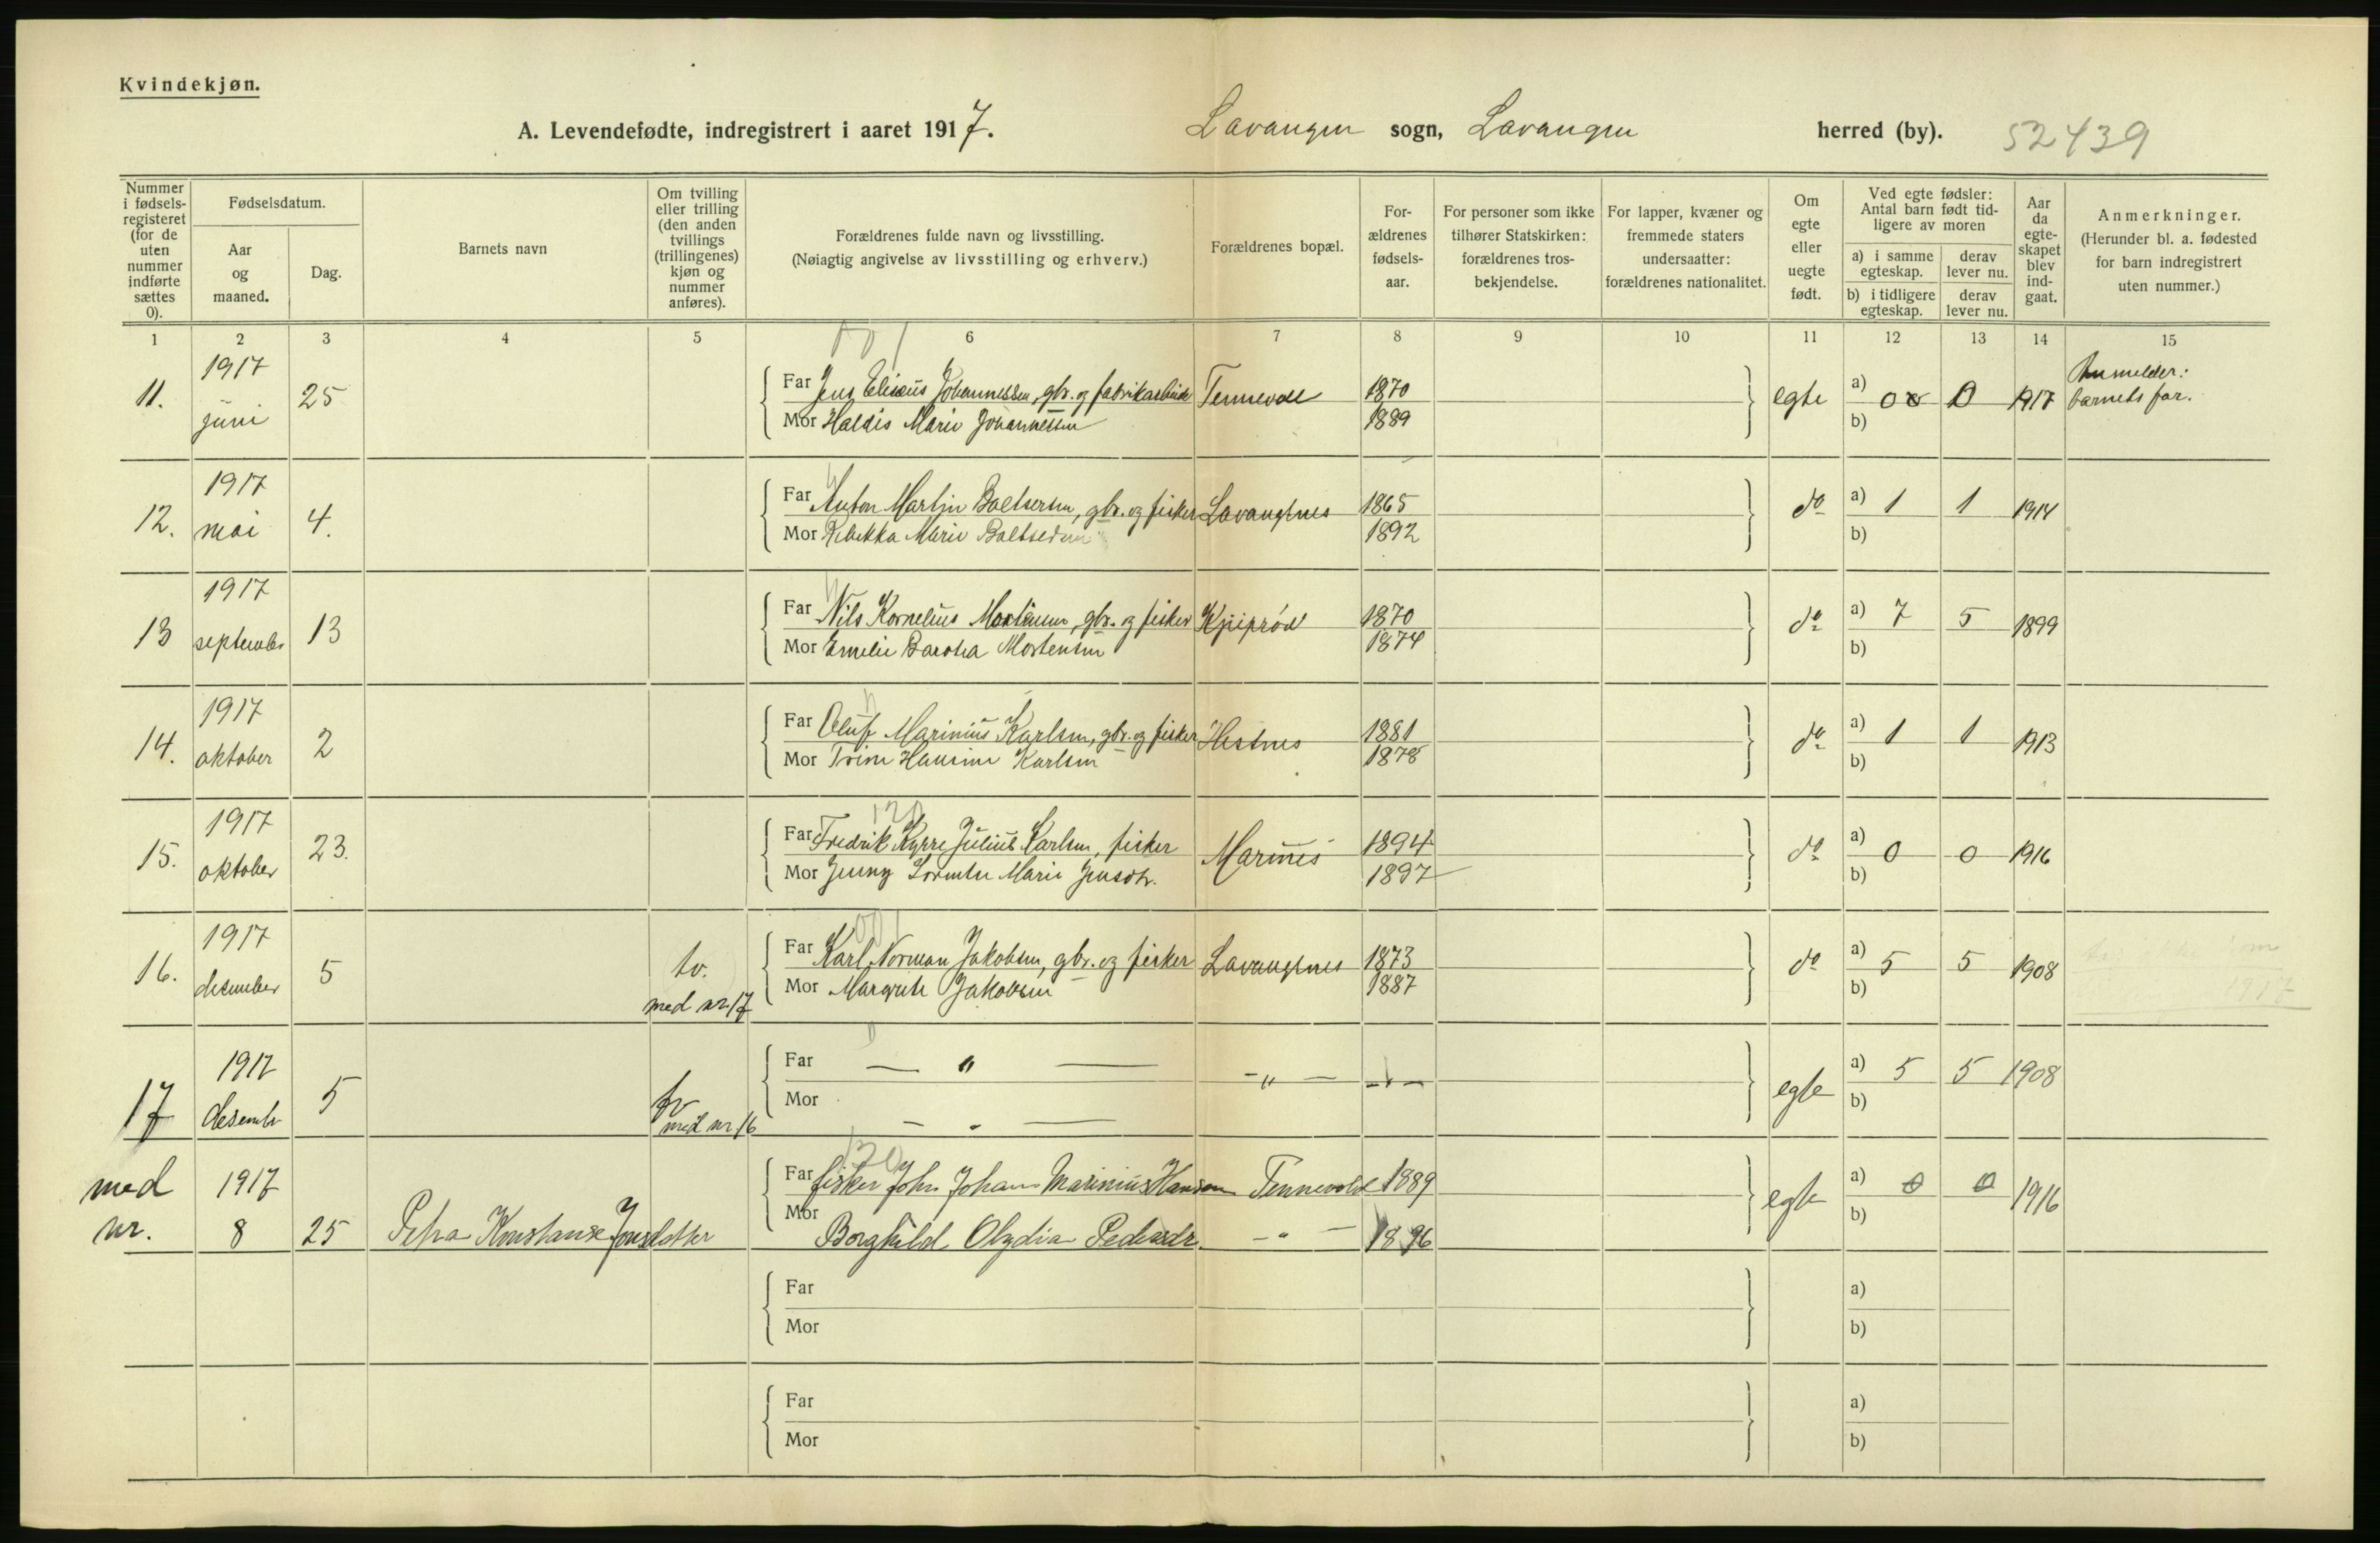 Kvindekjøn.
A. Levendefødte, indregistrert i aaret 1917. Lavangen sogn, Lavangen herred (by). 52439
Nummer i fødsels-registeret (for de uten nummer indførte sættes 0).
Fødselsdatum.
Aar og maaned.
Dag.
Barnets navn
Om tvilling eller trilling (den anden tvillings (trillingenes) kjøn og nummer anføres).
Forældrenes fulde navn og livsstilling.
(Nøiagtig angivelse av livsstilling og erhverv.)
Forældrenes bopæl.
For-ældrenes fødsels-aar.
For personer som ikke tilhører Statskirken: forældrenes tros-bekjendelse.
For lapper, kvæner og fremmede staters undersaatter: forældrenes nationalitet.
Om egte eller uegte født.
Ved egte fødsler: Antal barn født tid-ligere av moren
a) i samme egteskap. derav lever nu.
b) i tidligere egteskap. derav lever nu.
Aar da egte-skapet blev ind-gaat.
Anmerkninger.
(Herunder bl. a. fødested for barn indregistrert uten nummer.)
1 2 3 4 5 6 7 8 9 10 11 12 13 14 15
11. 1917 juni 25 Far Jens Eliseus Johannessen, gbr. og fabrikarbeider Tennevoll 1870 egte a) 0 0 1917 Anmelder: barnets far.
Mor Haldis Marie Johannessen 1889 b)
12. 1917 mai 4. Far Anton Martin Baltsersen, gbr. og fisker Lavangsnes 1865 do a) 1 1 1914
Mor Rebekka Marie 1892 b)
13 1917 september 13 Far Nils Kornelius Mortensen, gbr. og fisker 1870 do a) 7 5 1899
Mor Emelie Mortensen 1874 b)
14. 1917 oktober 2 Far Oluf Marinius Karlsen, gbr. og fisker Hestnes 1881 do a) 1 1 1913
Mor Trine Hansine Karlsen 1878 b)
15. 1917 oktober 23. Far Fredrik Kyrre Julius Karlsen, fisker 1894 do a) 0 0 1916
Mor Jenny Marie Jensdtr. 1897 b)
16. 1917 desember 5 tv. med nr 17 Far Karl Norman Jakobsen, gbr. og fisker Lavangsnes 1873 do a) 5 5 1908
Mor Margrete Jakobsen 1887 b)
17 1917 desembr 5 tv med nr 16 Far — " — — " — — " — egte a) 5 5 1908
Mor — " — b)
med nr. 1917 8 25 Petra Konstanse Jonsdatter Far fisker John Johan Marinius Hansen Tennevold 1889 egte a) 0 0 1916
Mor Borghild Olydia Pedersdr. — " — 1896 b)
Far a)
Mor b)
Far a)
Mor b)